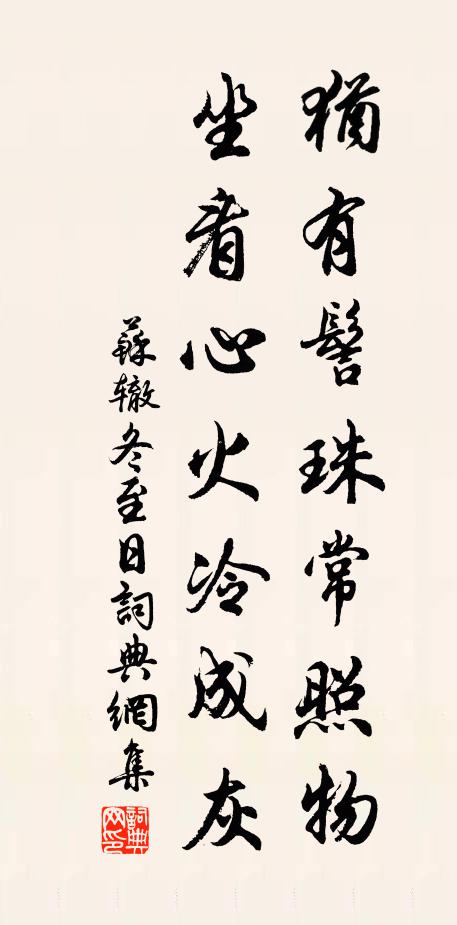 猶有髻珠常照物
坐看心火冷成灰
蘇轍冬至日詞典網集
詞典网印